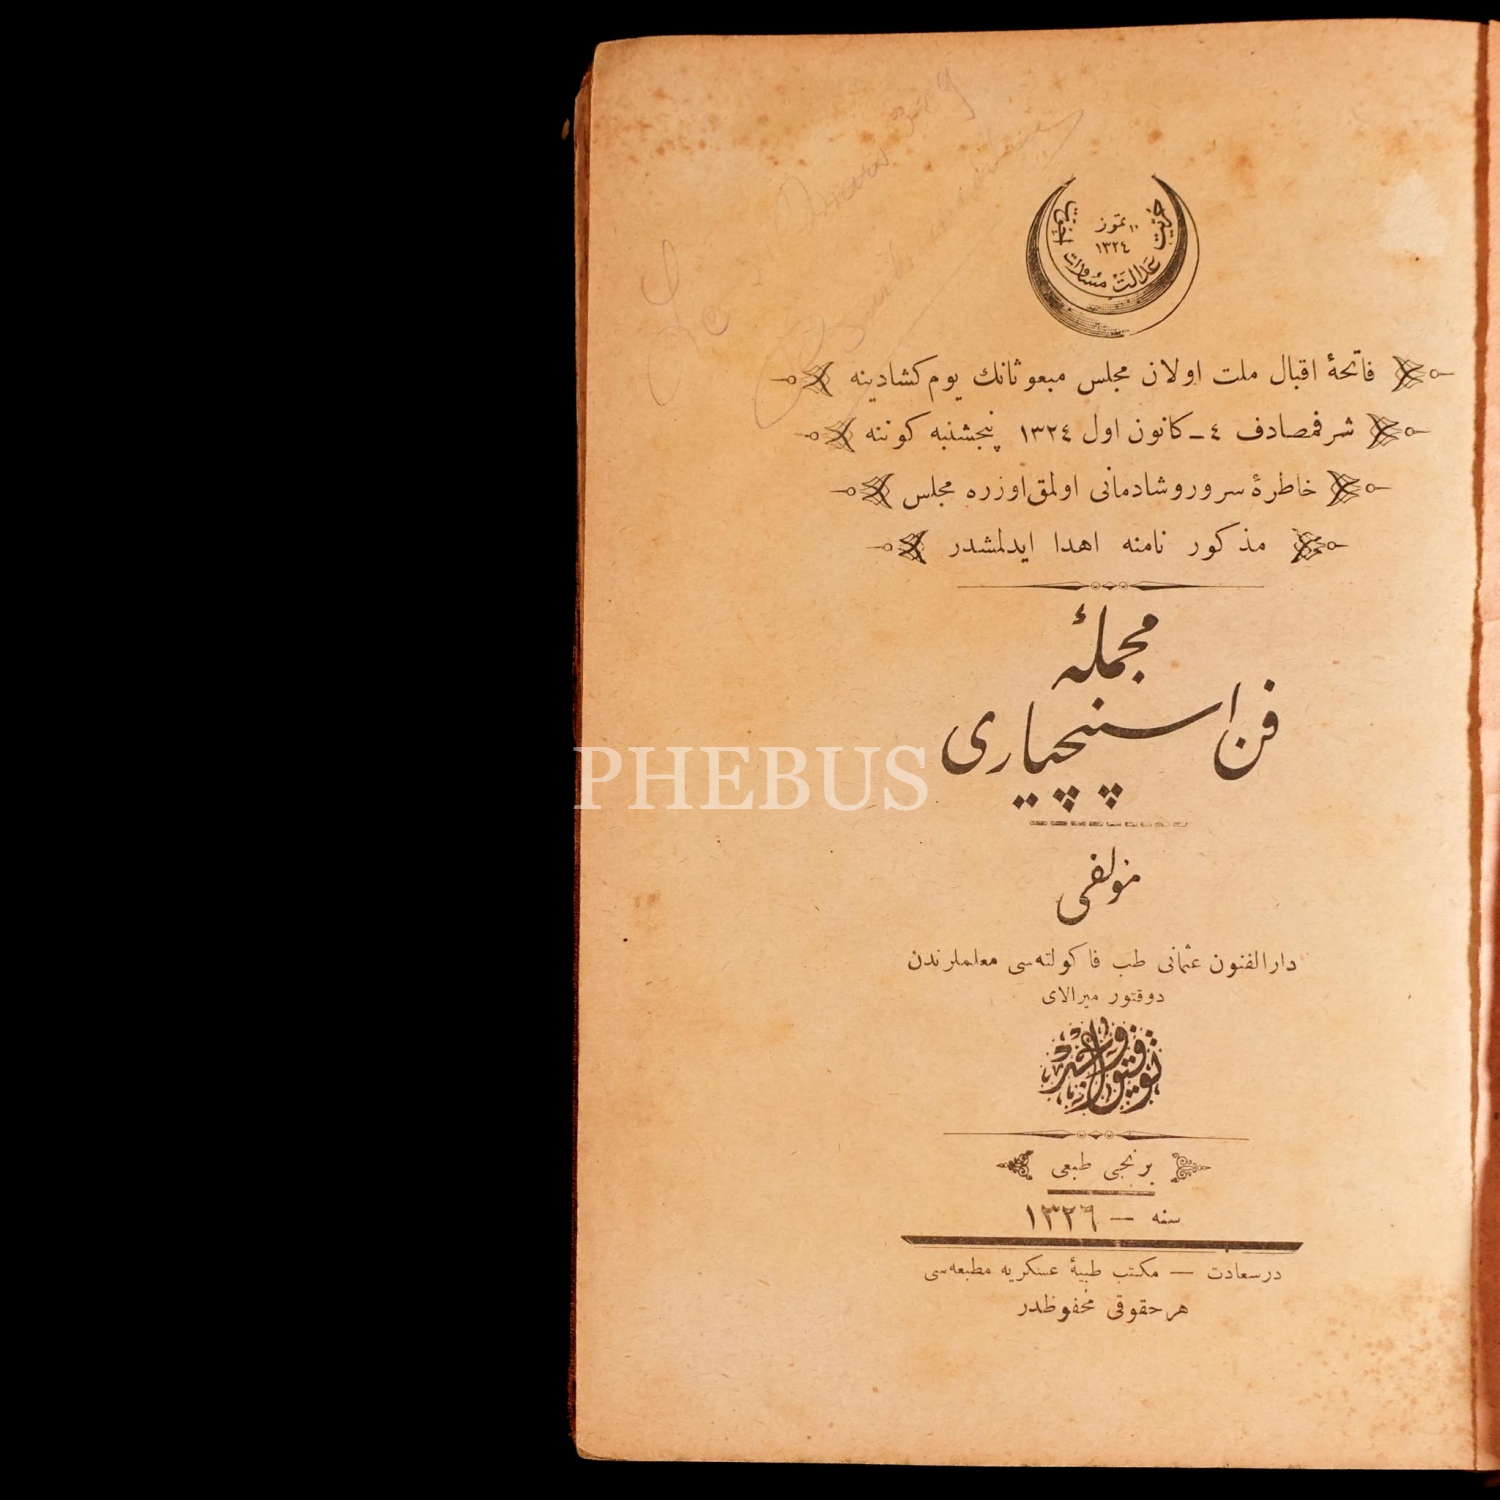 حریت عدالت مساوات اخوت
١٠ تموز
١٣٢٤
فاتحهٔ اقبال ملت اولان مجلس مبعوثانك یوم كشادینه
شرفمصادف ٤ــ كانون اول ١٣٢٤ پنجشنبه كوننه
خاطرهٔ سرور و شادمانی اولمق اوزره مجلس
مذكور نامنه اهدا ایدلمشدر
مجملهٔ
فن اسپنچیاری
PHEBUS
مؤلفی
دار الفنون عثمانی طب فاكولته‌سی معلملرندن
دوقتور میرالای
برنجی طبعی
سنه — ١٣٢٦
درسعادت — مكتب طبیهٔ عسكریه مطبعه‌سی
هر حقوقی محفوظدر